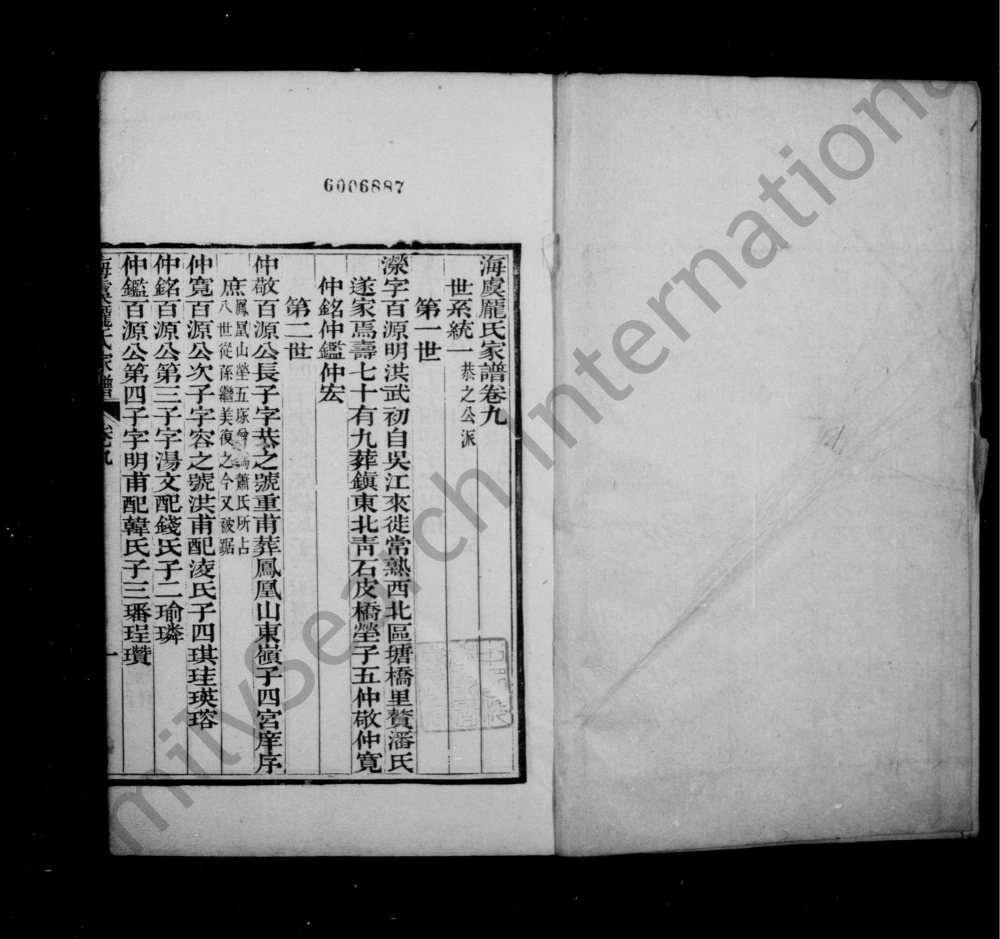 6006887
海虞龐氏家譜卷九
世系統一 恭之公派
第一世
濚字百源明洪武初自吳江來徙常熟西北區塘橋里贅潘氏
遂家焉壽七十有九葬鎮東北靑石皮橋塋子五仲敬仲寬
仲銘仲鑑仲宏
第二世
仲敬百源公長子字恭之號重甫葬鳳凰山東嶺子四宮庠序
庶 鳳凰山塋五塚曾爲蕭氏所占
八世從孫繼美復之今又被踞
仲寬百源公次子字容之號洪甫配凌氏子四琪珪瑛瑢
仲銘百源公第三子字湯文配錢氏子二瑜璘
仲鑑百源公第四子字明甫配韓氏子三璠珵瓚
海虞龐氏家譜 卷九 一
FamilySearch International